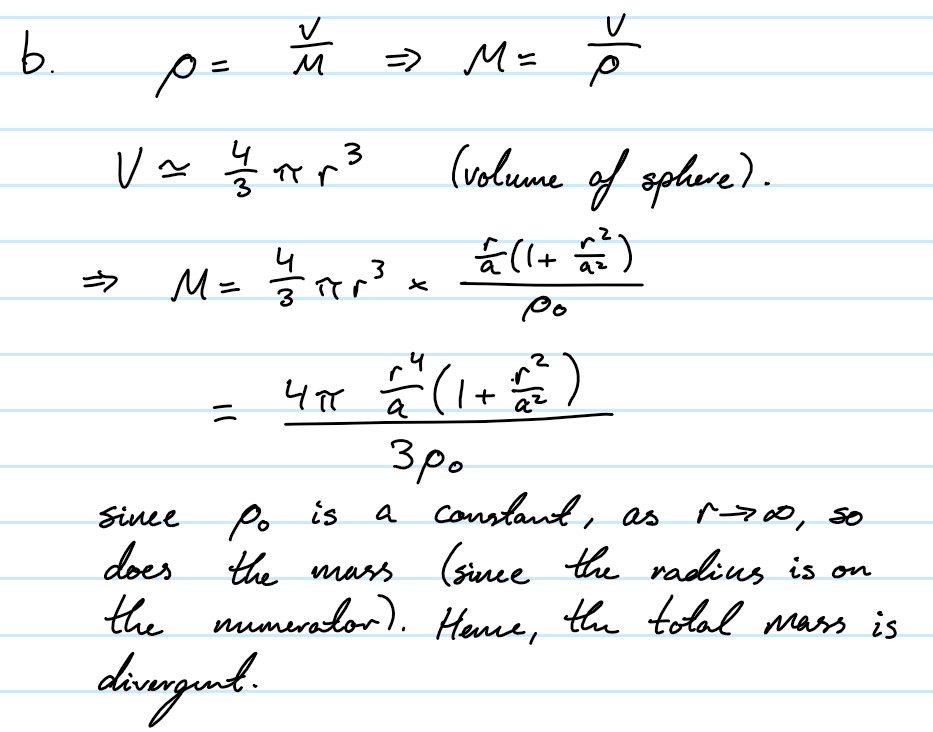 b. ρ = V/M ⇒ M = V/ρ
V ≃ 4/3 π r³ (volume of sphere).
⇒ M = 4/3 π r³ × (r/a (1 + r²/a²))/ρ₀
= (4π r⁴/a (1 + r²/a²))/(3ρ₀)
since ρ₀ is a constant, as r→∞, so
does the mass (since the radius is on
the numerator). Hence, the total mass is
divergent.